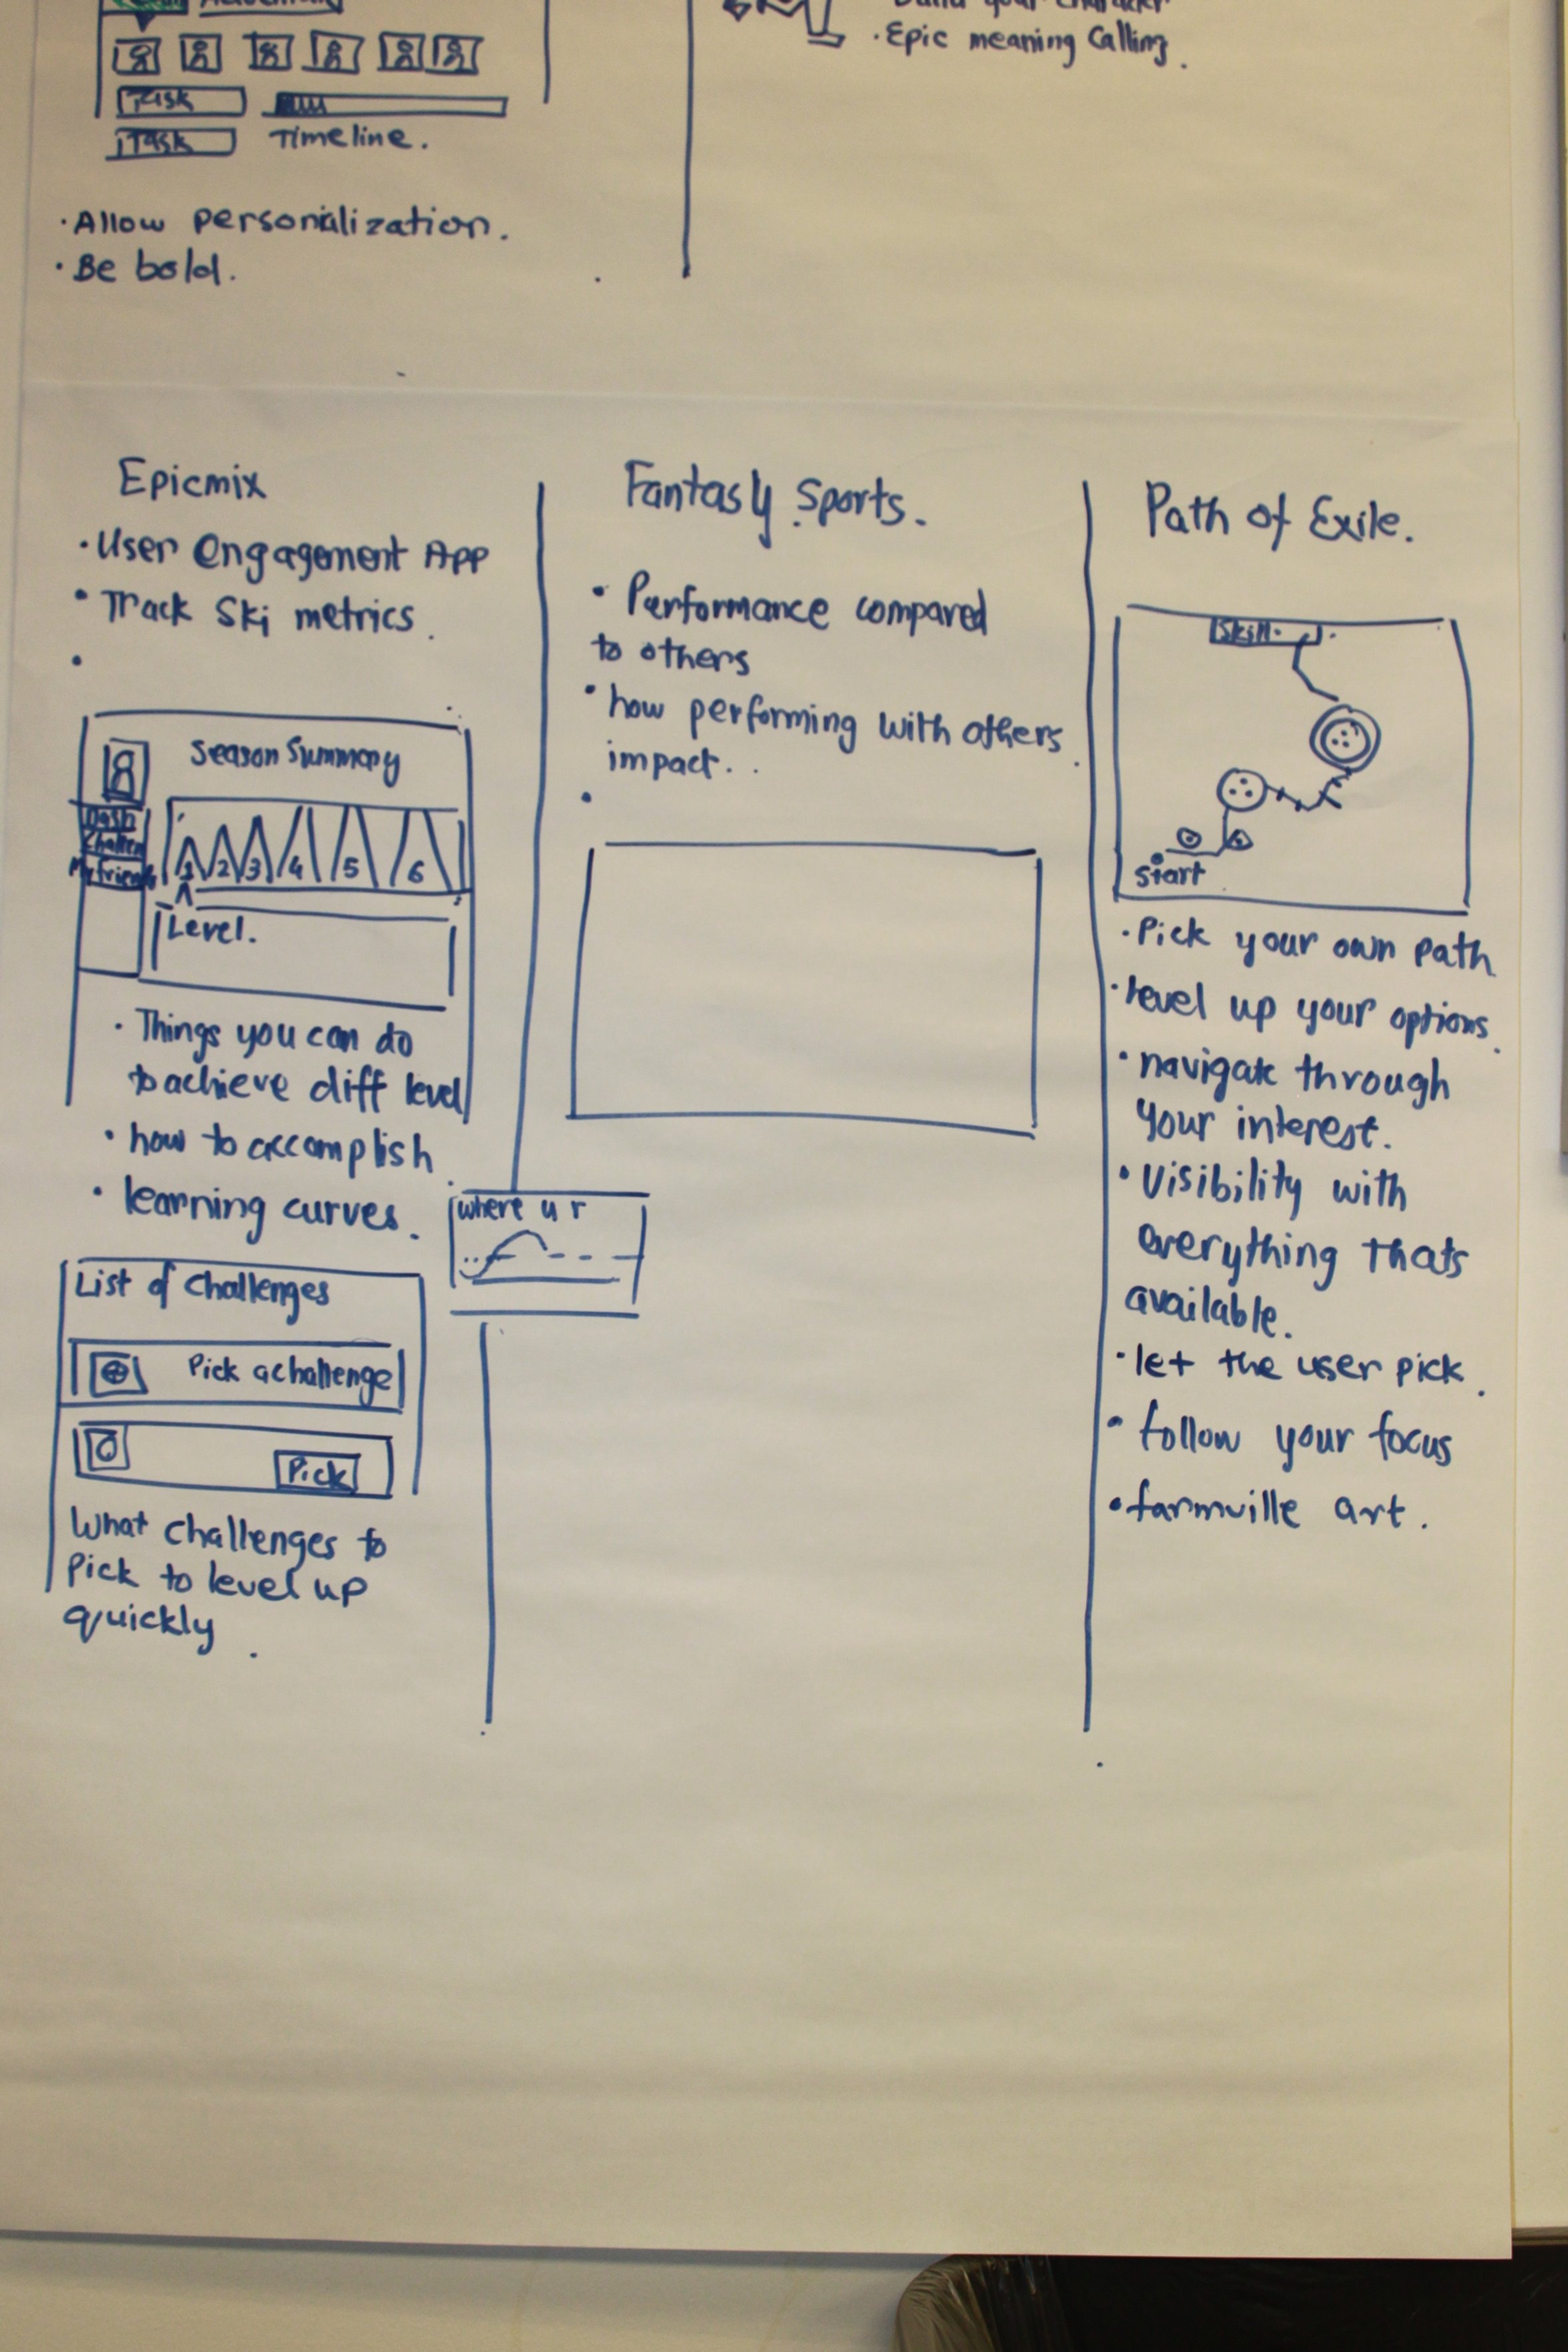 Task
Task
Timeline.
· Allow personialization.
· Be bold.
· Epic meaning Calling.
Epicmix
· User Engagement App
· Track Ski metrics.
Season Summary
Dash
Challen
My friends
1 2 3 4 5 6
Level.
· Things you can do
to achieve diff level
· how to accomplish
· learning curves.
where u r
List of Challenges
Pick a challenge
Pick
What challenges to
Pick to level up
quickly.
Fantasy Sports.
· Performance compared
to others
· how performing with others
impact. .
Path of Exile.
Skill.
Start
· Pick your own path
· level up your options.
· navigate through
your interest.
· Visibility with
everything thats
available.
· let the user pick.
· follow your focus
· farmville art.